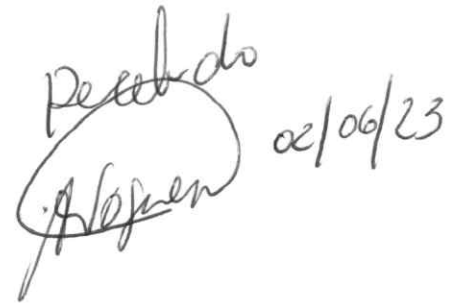 Recebido
02/06/23